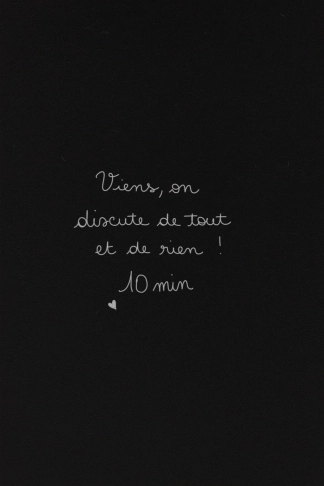 Viens, on
discute de tout
et de rien !
10 min